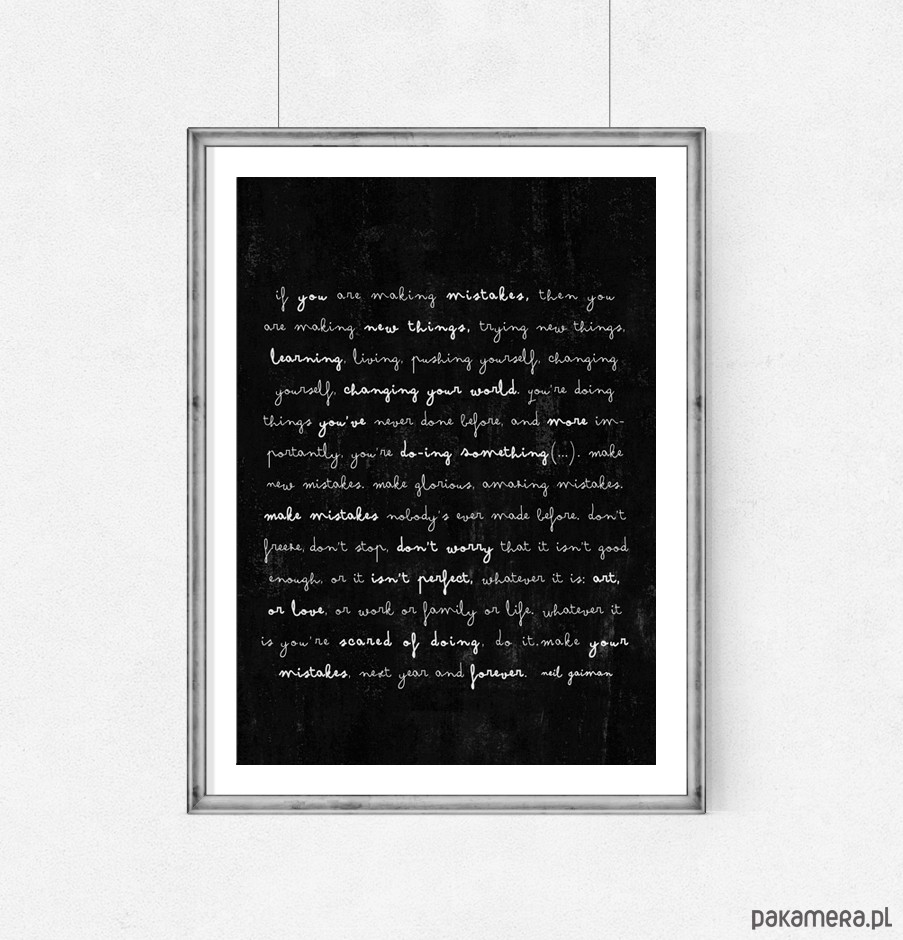 if you are making mistakes, then you
are making new things, trying new things,
learning, living, pushing yourself, changing
yourself, changing your world. you're doing
things you've never done before, and more im-
portantly, you're do-ing something(...). make
new mistakes. make glorious, amazing mistakes.
make mistakes nobody's ever made before. don't
freeze, don't stop, don't worry that it isn't good
enough, or it isn't perfect, whatever it is: art,
or love, or work or family or life. whatever it
is you're scared of doing, do it.make your
mistakes, next year and forever. neil gaiman
pakamera.pl